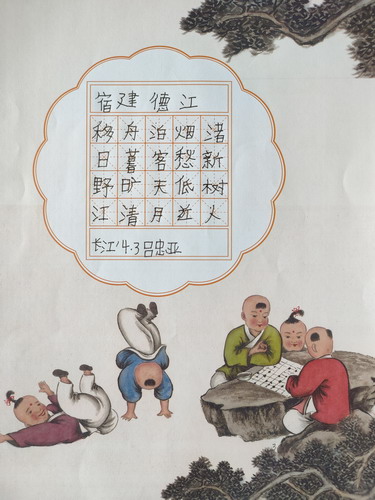 宿建德江
移舟泊烟渚
日暮客愁新
野旷天低树
江清月近火
长江'4.3吕忠亚